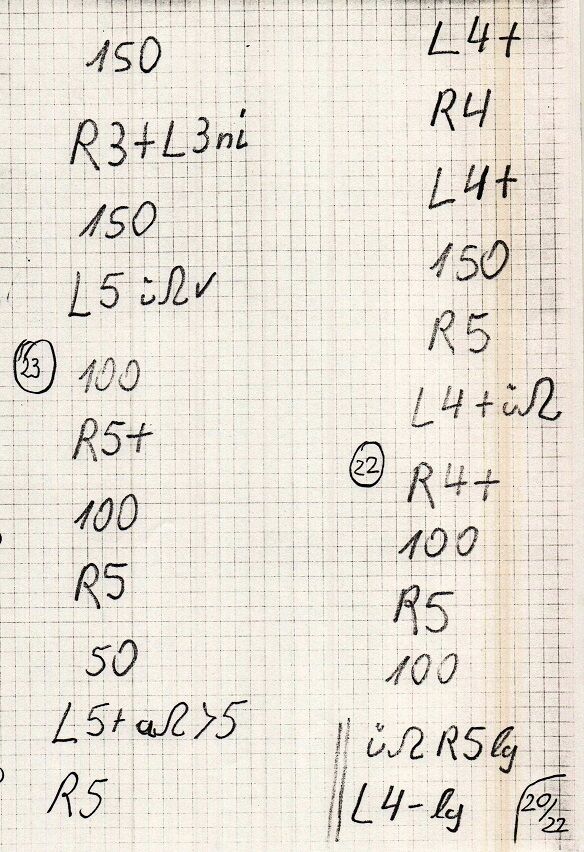 150
R3+L3ni
150
L5 üΩ✓
23 100
R5+
100
R5
50
L5+aΩ>5
R5
L4+
R4
L4+
150
R5
L4+üΩ
22 R4+
100
R5
100
üΩ R5lg
L4-lg
20/22